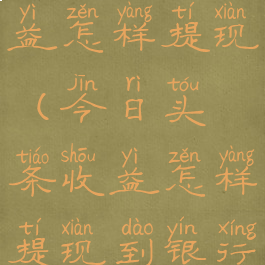 yì zěn yàng tí xiàn
益怎样提现
jīn rì tóu
（今日头
tiáo shōu yì zěn yàng
条收益怎样
tí xiàn dào yín xíng
提现到银行